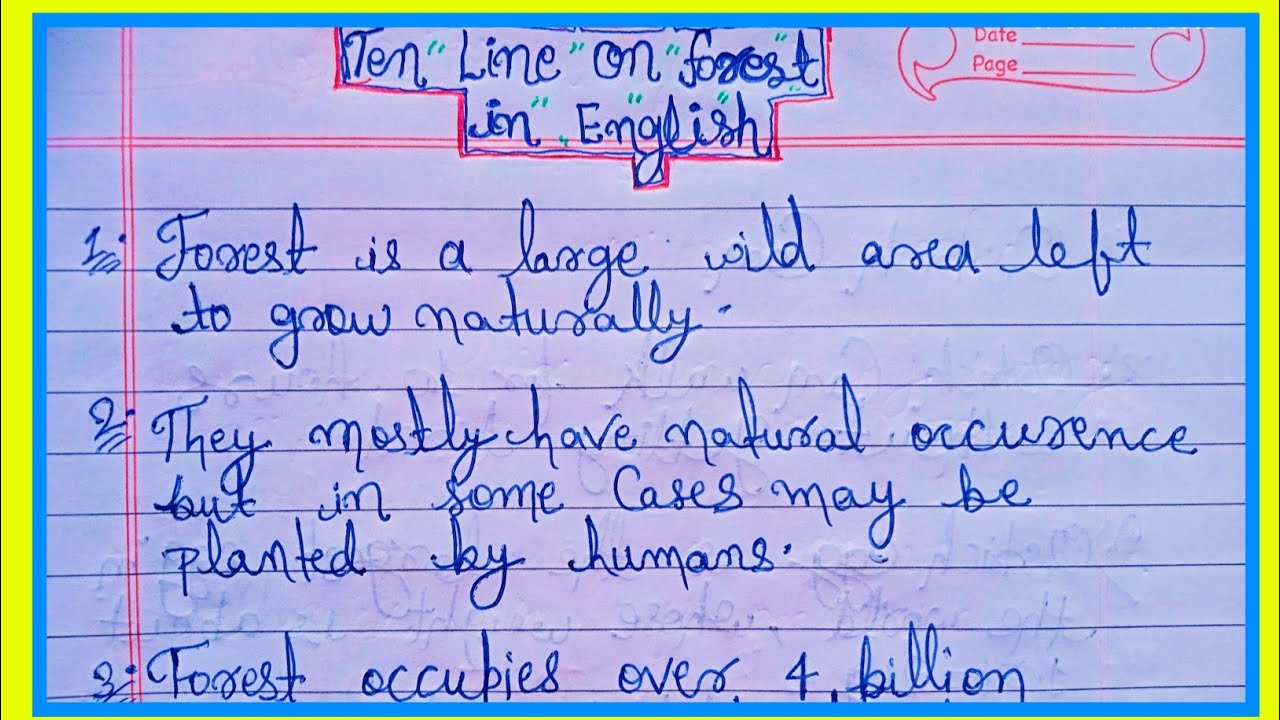 Date
Page
Ten" Line" on" forest
in" English
1. Forest is a large wild area left
to grow naturally.
2. They mostly have natural occurence
but in some Cases may be
planted by humans.
3. Forest occupies over 4. billion